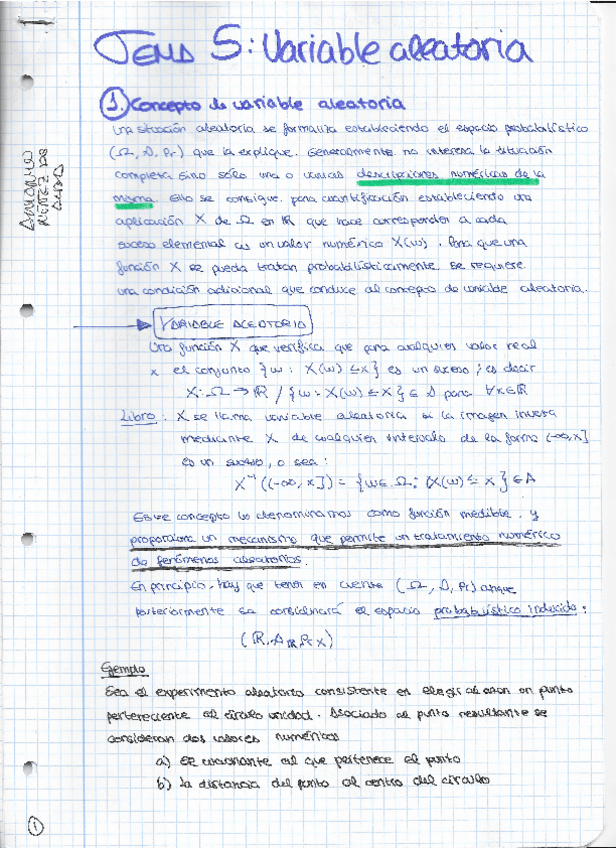 TEMA 5: Variable aleatoria
1. Concepto de variable aleatoria
Una situación aleatoria se formaliza estableciendo el espacio probabilístico
(Ω, A, Pr) que la explique. Generalmente no interesa la situación
completa sino sólo una o varias descripciones numéricas de la
misma. Ello se consigue, para cuantificación estableciendo una
aplicación X de Ω en ℝ que hace corresponder a cada
suceso elemental ω un valor numérico X(ω). Para que una
función X se pueda tratar probabilísticamente se requiere
una condición adicional que conduce al concepto de variable aleatoria.
VARIABLE ALEATORIA
Una función X que verifica que para cualquier valor real
x el conjunto {ω : X(ω) ≤ x} es un suceso; es decir
X: Ω → ℝ / {ω : X(ω) ≤ x} ∈ A para ∀x∈ℝ
Libro: X se llama variable aleatoria si la imagen inversa
mediante X de cualquier intervalo de la forma (-∞,x]
es un suceso, o sea:
X⁻¹((-∞, x]) = {ω∈Ω : X(ω) ≤ x} ∈ A
Este concepto lo denominamos como función medible. y
proporciona un mecanismo que permite un tratamiento numérico
de fenómenos aleatorios.
En principio, hay que tener en cuenta (Ω, A, Pr) aunque
posteriormente se considerará el espacio probabilístico inducido:
(ℝ, Aℝ, Pr X)
Ejemplo
Sea el experimento aleatorio consistente en elegir al azar un punto
perteneciente al círculo unidad. Asociado al punto resultante se
consideran dos valores numéricos
a) El cuadrante al que pertenece el punto
b) La distancia del punto al centro del círculo
1